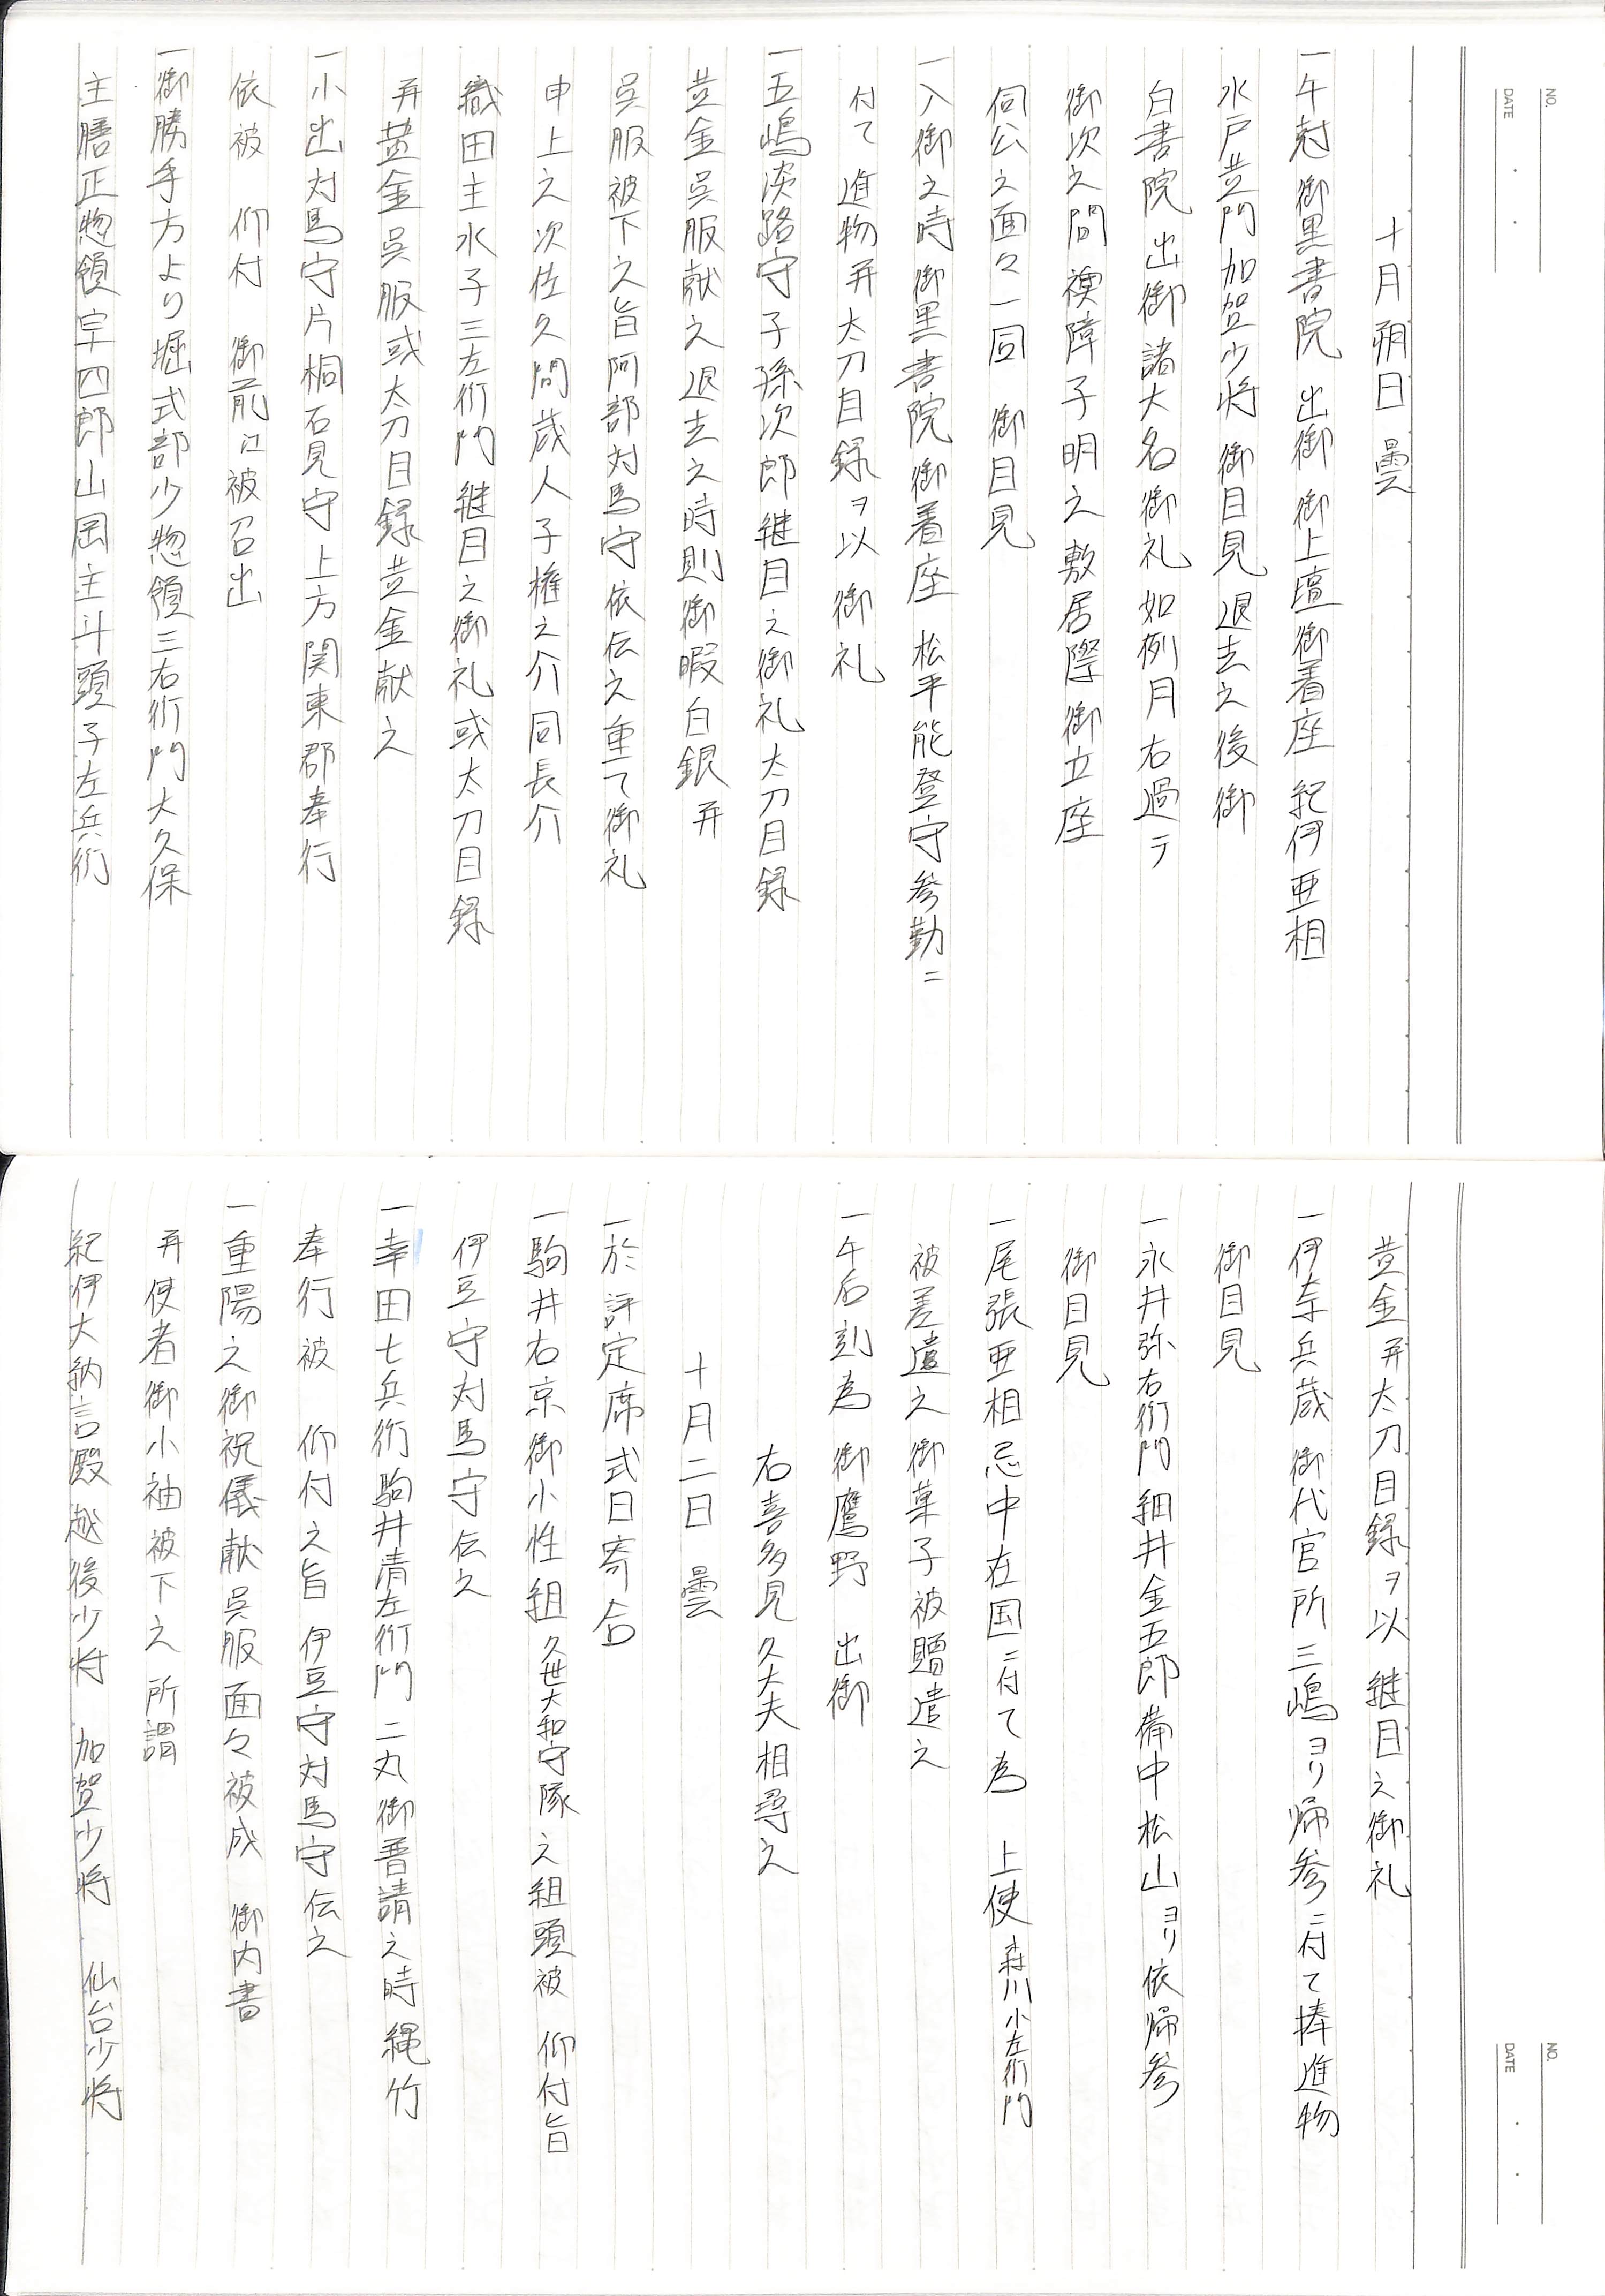 十月朔日 曇
一午刻 御黒書院 出御 御上壇御着座 紀伊亜相
水戸黄門加賀少将 御目見退去之後御
白書院 出御諸大名御礼如例月右過テ
御次之間 襖障子明之敷居際御立座
伺公之面々一同 御目見
一入御之時 御黒書院御着座 松平能登守参勤ニ
付て 進物并太刀目録ヲ以御礼
一五嶋淡路守子孫次郎継目之御礼太刀目録
黄金呉服献之退去之時則御暇白銀并
呉服被下之旨阿部対馬守依伝之重て御礼
申上之次佐久間蔵人子権之介同長介
織田主水子三左衛門継目之御礼或太刀目録
并黄金呉服或太刀目録黄金献之
一小出対馬守片桐石見守上方関東郡奉行
依被 仰付 御前江被召出
一御勝手方より堀式部少惣領三右衛門大久保
主膳正惣領宇四郎山岡主斗頭子左兵衛
黄金并太刀目録ヲ以継目之御礼
一伊奈兵蔵 御代官所三嶋ヨリ帰参ニ付て捧進物
御目見
一永井弥右衛門細井金五郎備中松山ヨリ依帰参
御目見
一尾張亜相忌中在国ニ付て為 上使森川小左衛門
被差遣之御菓子被贈遣之
一午后刻為 御鷹野 出御
右喜多見久大夫相尋之
十月二日 曇
一於評定席式日寄合
一駒井右京御小性組久世大和守隊之組頭被 仰付旨
伊豆守対馬守伝之
一幸田七兵衛駒井清左衛門二丸御普請之時縄竹
奉行被 仰付之旨伊豆守対馬守伝之
一重陽之御祝儀献呉服面々被成 御内書
并使者御小袖被下之所謂
紀伊大納言殿 越後少将 加賀少将 仙台少将
NO.
DATE
NO.
DATE